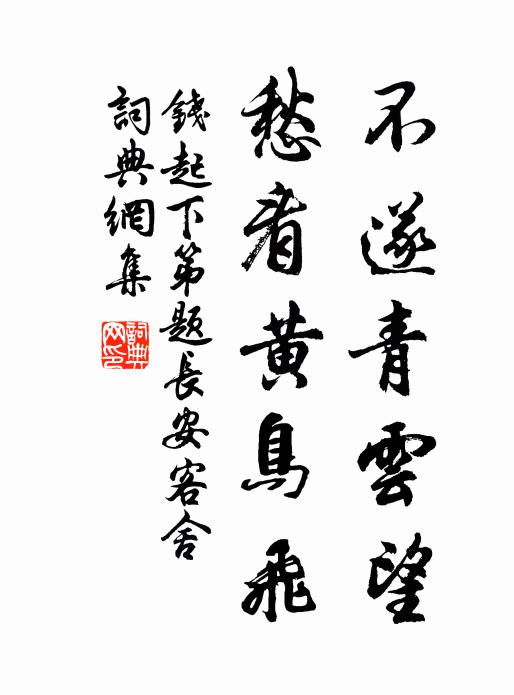 不遂青雲望
愁看黄鳥飛
錢起下第題長安客舍
詞典網集
詞典网印